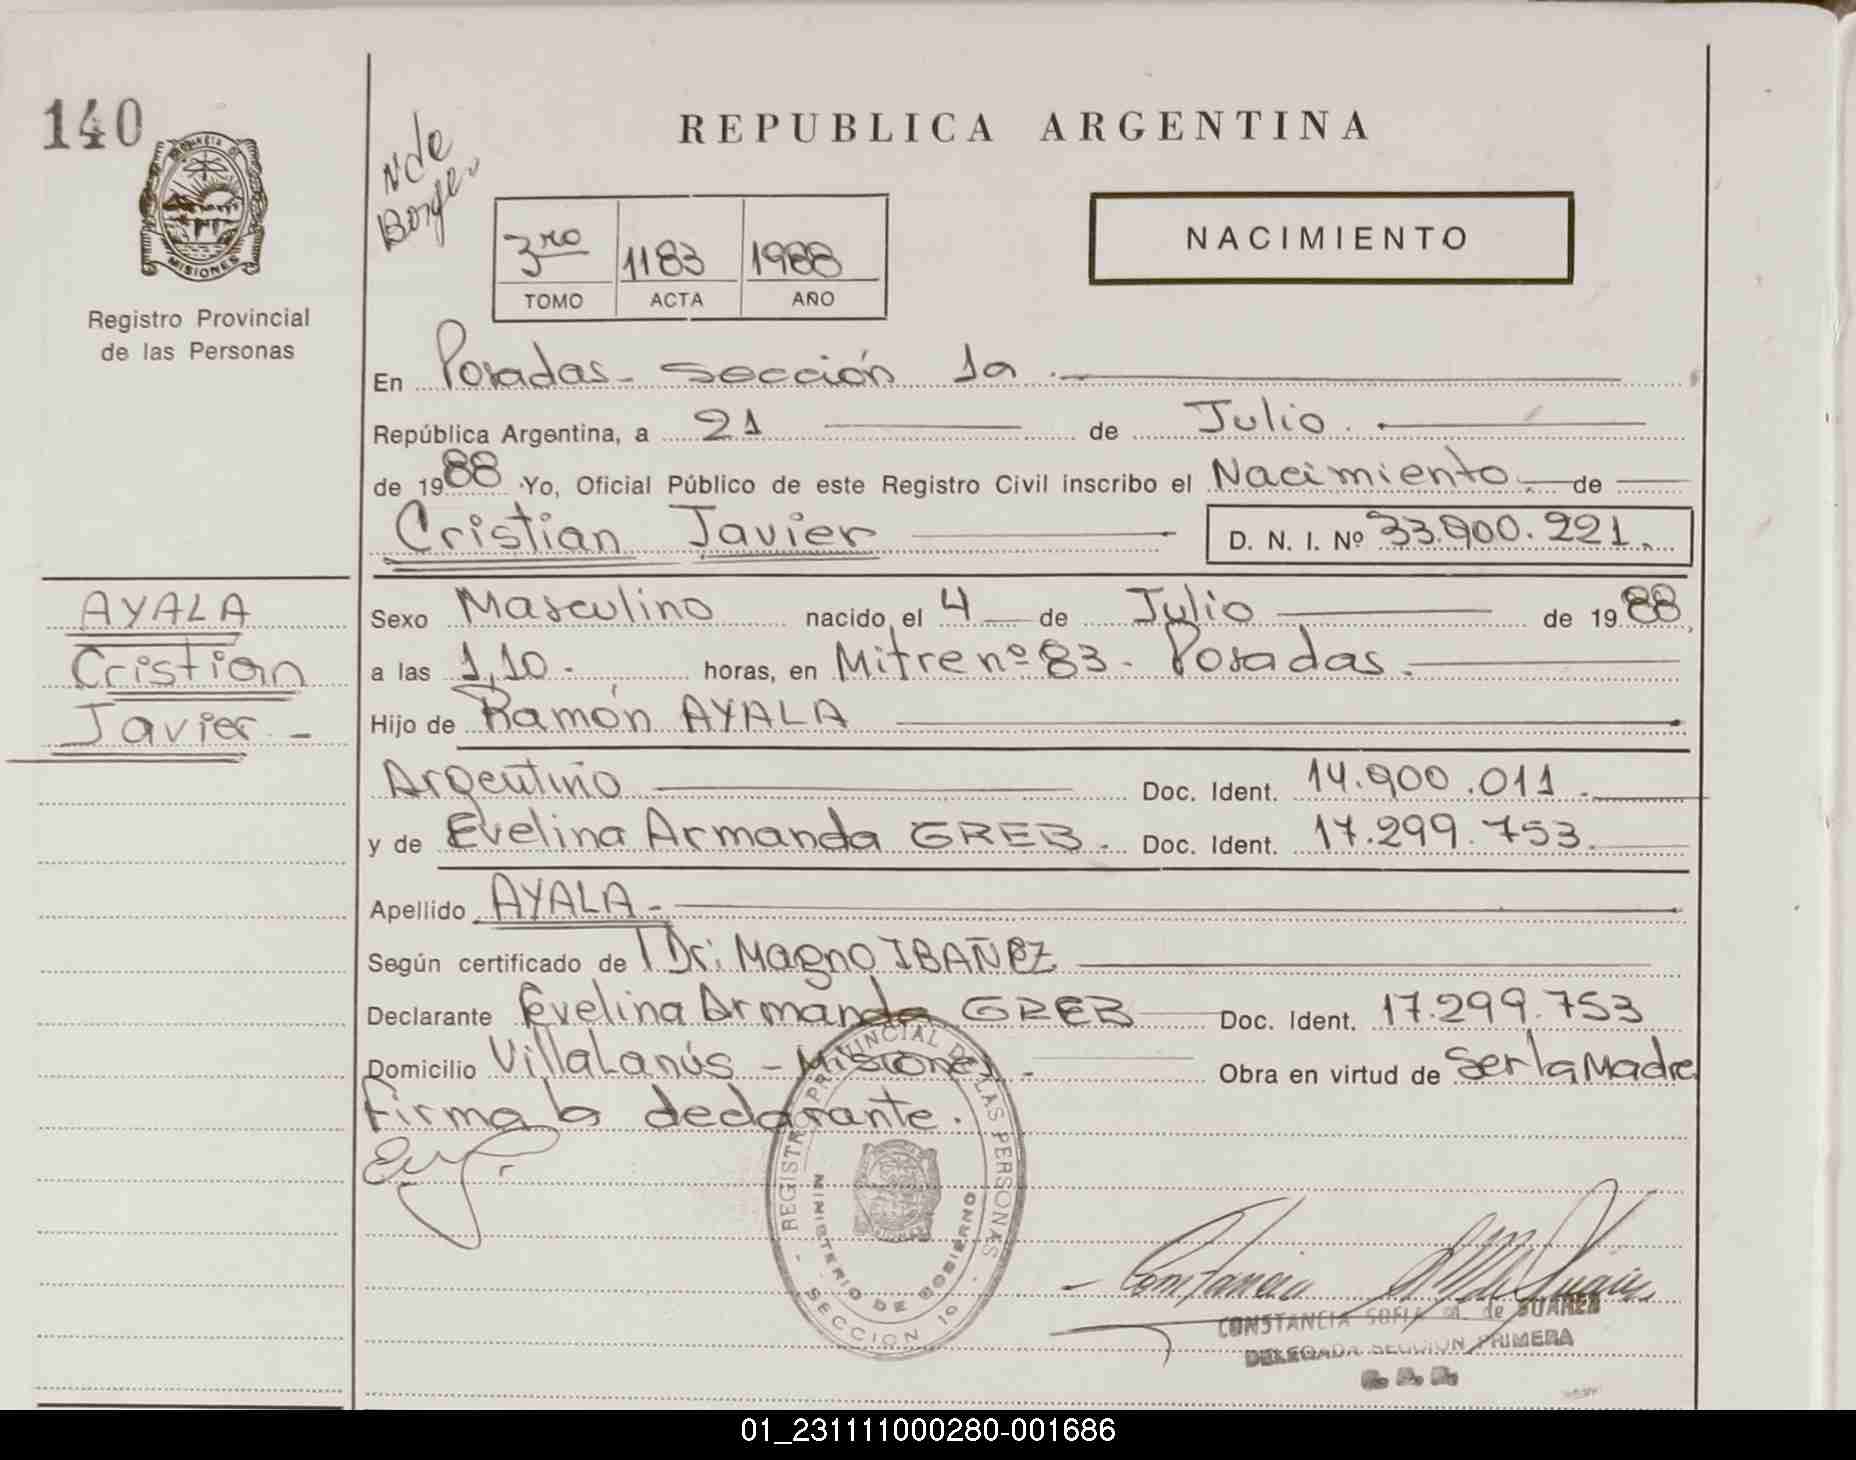 140
REPUBLICA ARGENTINA
N' de
PROVINCIA DE
MISIONES
Registro Provincial
de las Personas
3ro 1183 1988
TOMO ACTA AÑO
NACIMIENTO
En Posadas - Sección 1a.
República Argentina, a 21 de Julio.
de 1988 Yo, Oficial Público de este Registro Civil inscribo el Nacimiento. de
Cristian Javier D. N. I. Nº 33.900.221.
AYALA
Cristian
Javier -
Sexo Masculino nacido el 4 de Julio de 1988
a las 1,10 - horas, en Mitre nº 83 - Posadas.
Hijo de Ramón AYALA
Argentino Doc. Ident. 14.900.011.
y de Evelina Armanda GREB. Doc. Ident. 17.299.753.
Apellido AYALA -
Según certificado de Dr: Magno IBAÑEZ
Declarante Evelina Armanda GREB Doc. Ident. 17.299.753
Domicilio Villa Lanús - Misiones - Obra en virtud de Ser la Madre
Firma la declarante.
REGISTRO PROVINCIAL DE LAS PERSONAS
MINISTERIO DE GOBIERNO
SECCION 1a
MISIONES
Constancia
CONSTANCIA SOFIA M. de SUAREZ
DELEGADA SECCION PRIMERA
01_231111000280-001686